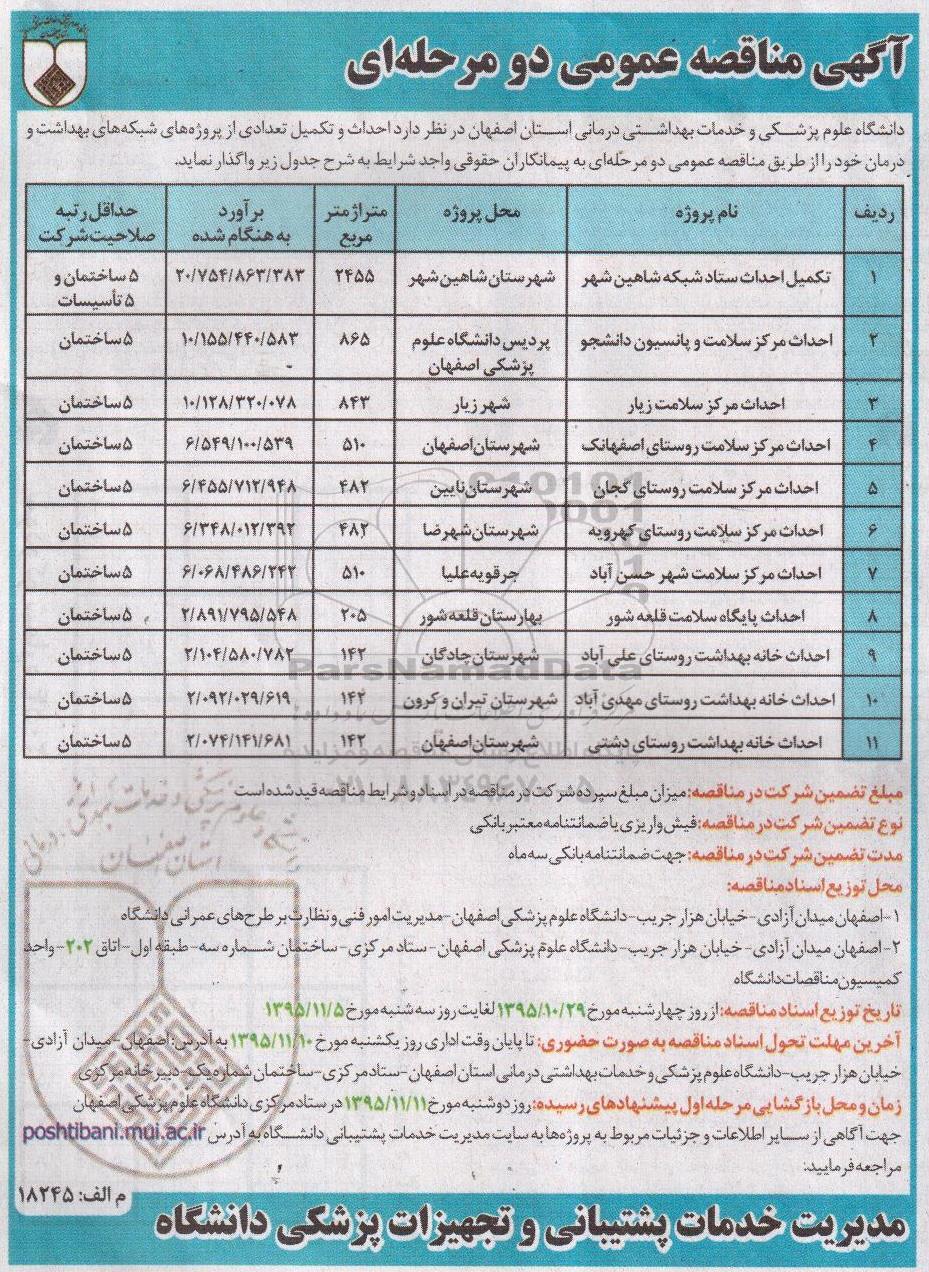 آگهی مناقصه عمومی دو مرحله‌ای
دانشگاه علوم پزشکی و خدمات بهداشتی درمانی استان اصفهان در نظر دارد احداث و تکمیل تعدادی از پروژه‌های شبکه‌های بهداشت و
درمان خود را از طریق مناقصه عمومی دو مرحله‌ای به پیمانکاران حقوقی واجد شرایط به شرح جدول زیر واگذار نماید.
ردیف نام پروژه محل پروژه متراژ متر مربع برآورد به هنگام شده حداقل رتبه صلاحیت شرکت
۱ تکمیل احداث ستاد شبکه شاهین شهر شهرستان شاهین شهر ۲۴۵۵ ۲۰/۷۵۴/۸۶۳/۳۸۳ ۵ ساختمان و ۵ تأسیسات
۲ احداث مرکز سلامت و پانسیون دانشجو پردیس دانشگاه علوم پزشکی اصفهان ۸۶۵ ۱۰/۱۵۵/۴۴۰/۵۸۳ ۵ ساختمان
۳ احداث مرکز سلامت زیار شهر زیار ۸۴۳ ۱۰/۱۲۸/۳۲۰/۰۷۸ ۵ ساختمان
۴ احداث مرکز سلامت روستای اصفهانک شهرستان اصفهان ۵۱۰ ۶/۵۴۹/۱۰۰/۵۳۹ ۵ ساختمان
۵ احداث مرکز سلامت روستای گجان شهرستان نایین ۴۸۲ ۶/۴۵۵/۷۱۲/۹۴۸ ۵ ساختمان
۶ احداث مرکز سلامت روستای کهرویه شهرستان شهرضا ۴۸۲ ۶/۳۴۸/۰۱۲/۳۹۲ ۵ ساختمان
۷ احداث مرکز سلامت شهر حسن آباد جرقویه علیا ۵۱۰ ۶/۰۶۸/۴۸۶/۲۴۲ ۵ ساختمان
۸ احداث پایگاه سلامت قلعه شور بهارستان قلعه شور ۲۰۵ ۲/۸۹۱/۷۹۵/۵۴۸ ۵ ساختمان
۹ احداث خانه بهداشت روستای علی آباد شهرستان چادگان ۱۴۲ ۲/۱۰۴/۵۸۰/۷۸۲ ۵ ساختمان
۱۰ احداث خانه بهداشت روستای مهدی آباد شهرستان تیران و کرون ۱۴۲ ۲/۰۹۲/۰۲۹/۶۱۹ ۵ ساختمان
۱۱ احداث خانه بهداشت روستای دشتی شهرستان اصفهان ۱۴۲ ۲/۰۷۴/۱۴۱/۶۸۱ ۵ ساختمان
ParsNamadData
مبلغ تضمین شرکت در مناقصه: میزان مبلغ سپرده شرکت در مناقصه در اسناد و شرایط مناقصه قید شده است
نوع تضمین شرکت در مناقصه: فیش واریزی یا ضمانتنامه معتبر بانکی
مدت تضمین شرکت در مناقصه: جهت ضمانتنامه بانکی سه ماه
محل توزیع اسناد مناقصه:
۱- اصفهان میدان آزادی- خیابان هزار جریب- دانشگاه علوم پزشکی اصفهان- مدیریت امور فنی و نظارت بر طرح‌های عمرانی دانشگاه
۲- اصفهان میدان آزادی- خیابان هزار جریب- دانشگاه علوم پزشکی اصفهان- ستاد مرکزی- ساختمان شماره سه- طبقه اول- اتاق ۲۰۲- واحد
کمیسیون مناقصات دانشگاه
تاریخ توزیع اسناد مناقصه: از روز چهارشنبه مورخ ۱۳۹۵/۱۰/۲۹ لغایت روز سه شنبه مورخ ۱۳۹۵/۱۱/۵
آخرین مهلت تحویل اسناد مناقصه به صورت حضوری: تا پایان وقت اداری روز یکشنبه مورخ ۱۳۹۵/۱۱/۱۰ به آدرس: اصفهان- میدان آزادی-
خیابان هزار جریب- دانشگاه علوم پزشکی و خدمات بهداشتی درمانی استان اصفهان- ستاد مرکزی- ساختمان شماره یک- دبیرخانه مرکزی
زمان و محل بازگشایی مرحله اول پیشنهادهای رسیده: روز دوشنبه مورخ ۱۳۹۵/۱۱/۱۱ در ستاد مرکزی دانشگاه علوم پزشکی اصفهان
جهت آگاهی از سایر اطلاعات و جزئیات مربوط به پروژه‌ها به سایت مدیریت خدمات پشتیبانی دانشگاه به آدرس poshtibani.mui.ac.ir
مراجعه فرمایید.
م الف: ۱۸۲۴۵
مدیریت خدمات پشتیبانی و تجهیزات پزشکی دانشگاه